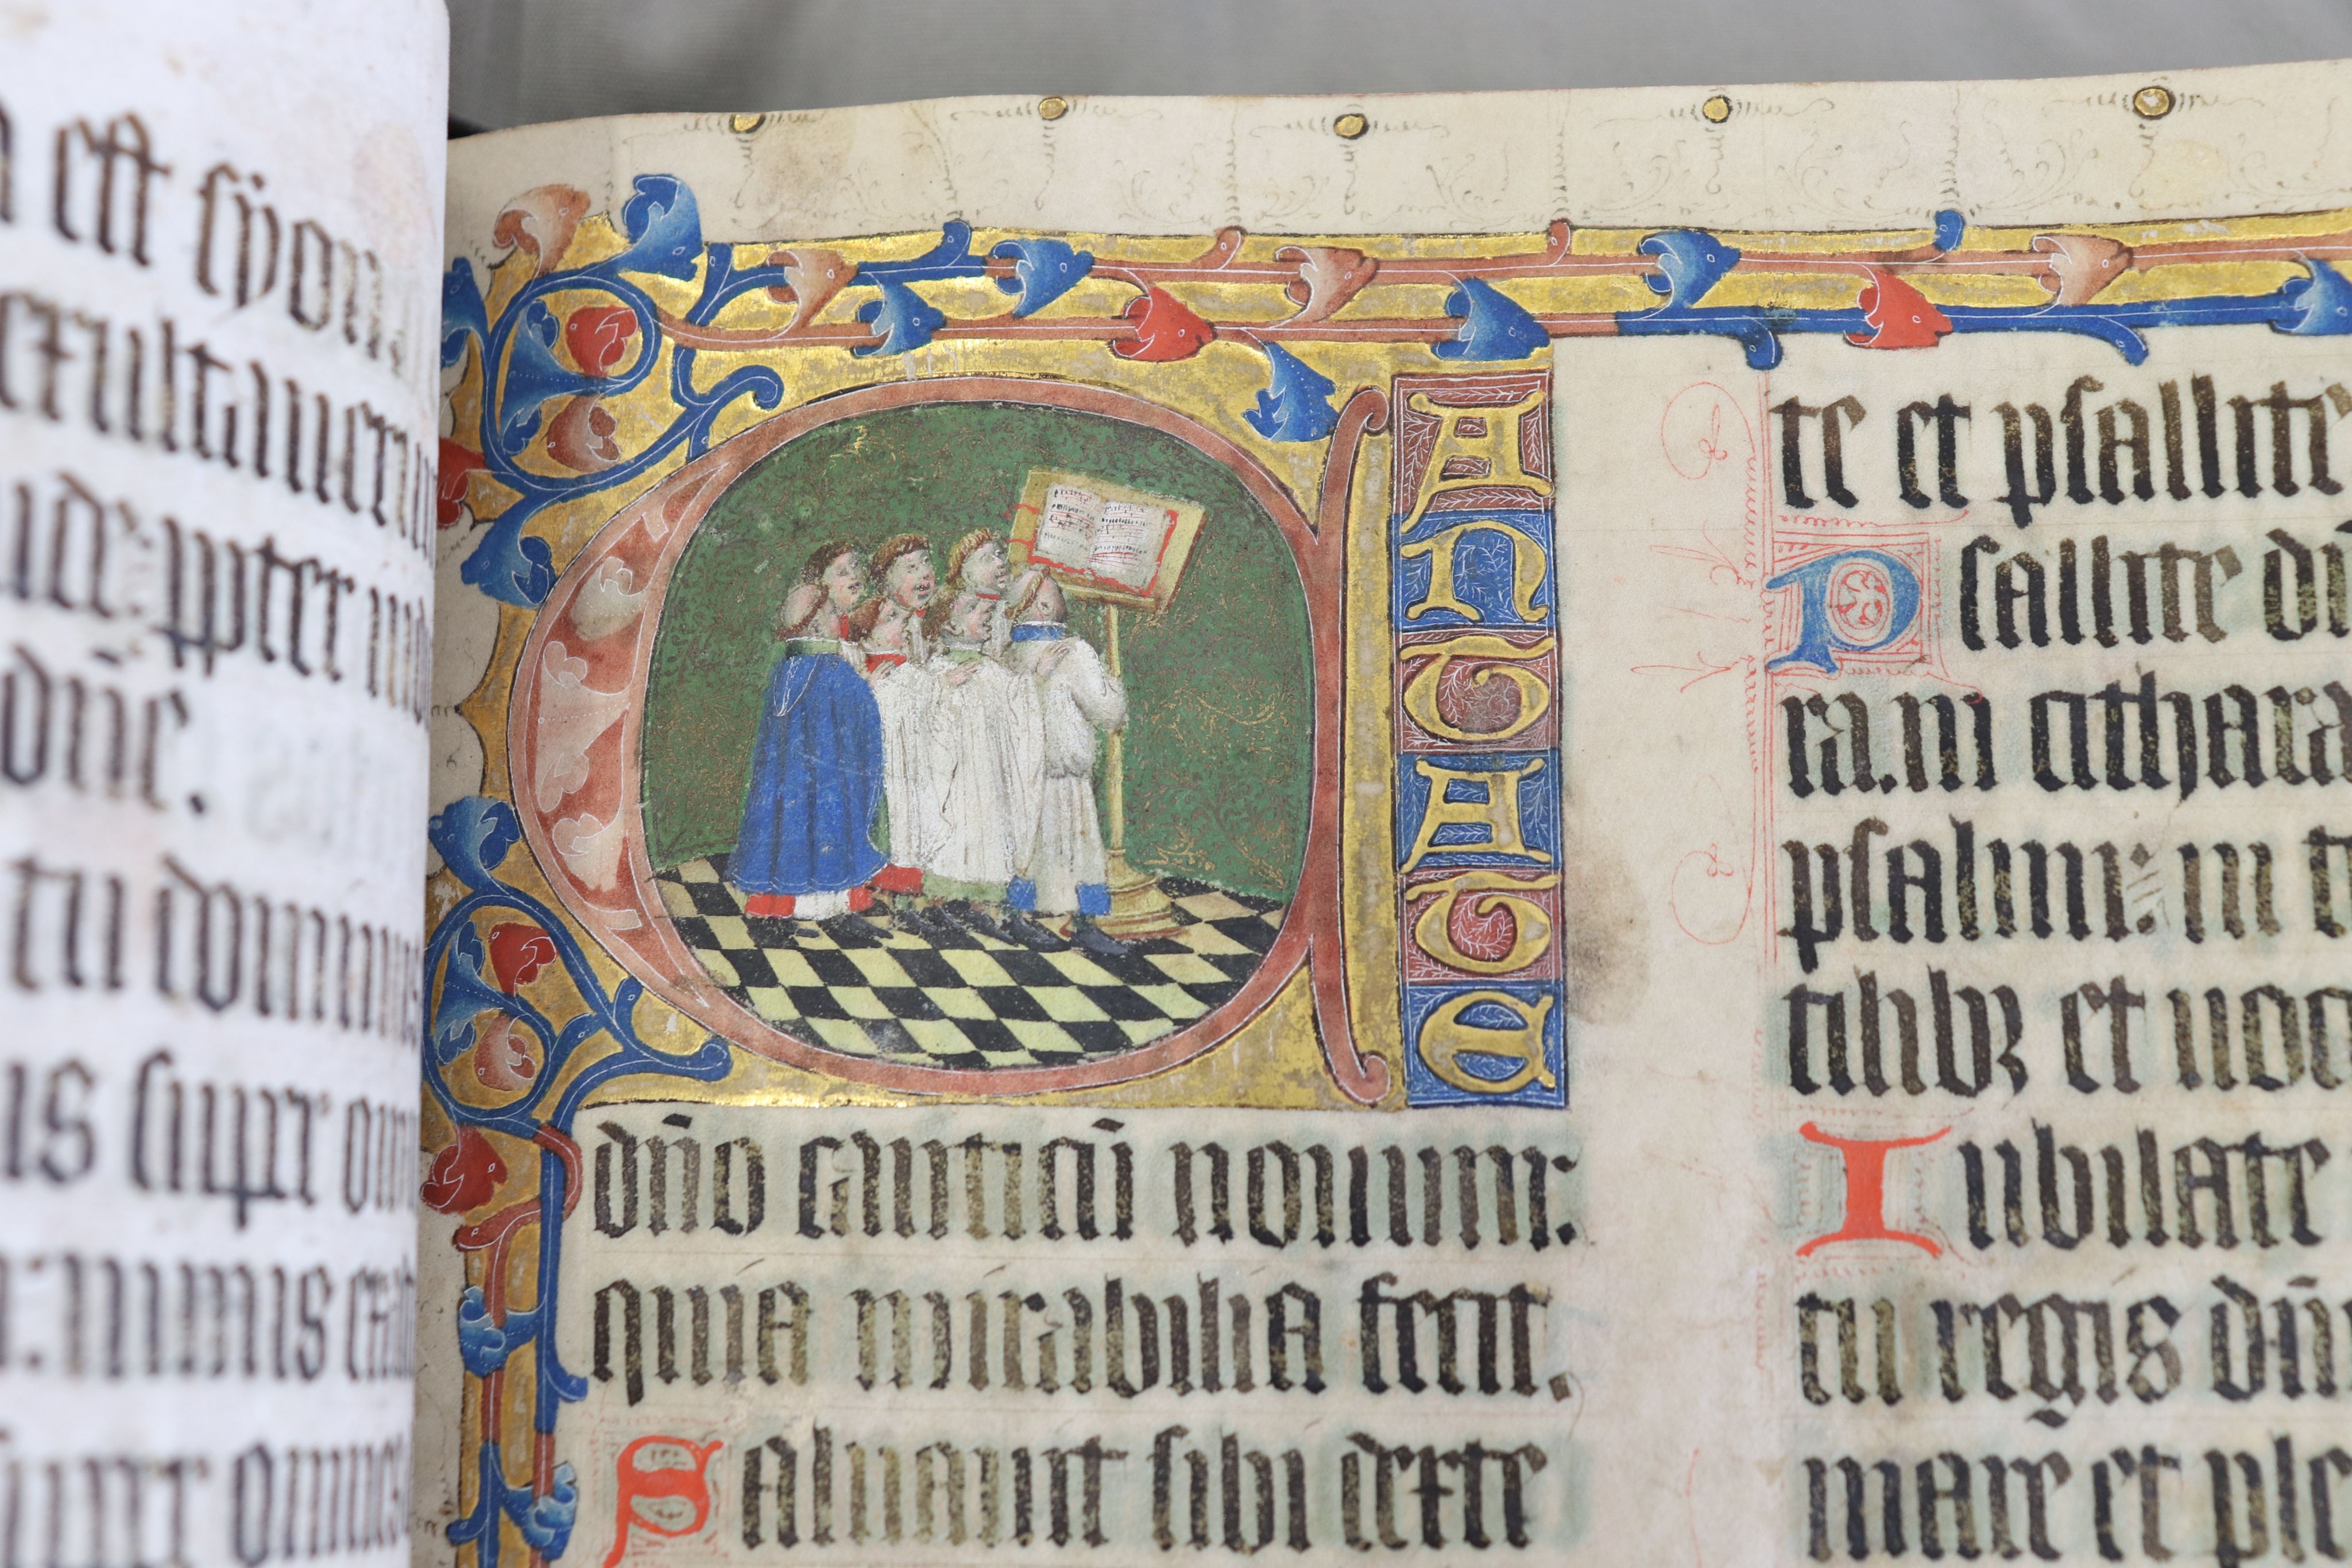 est syon
exultaueru
ude: ppter iud
dñe.
tu dominus
us super om
nimis exalt
super omnes
CANTATE
dño canticū nouum:
quia mirabilia fecit.
Saluauit sibi dexte
te et psallite
Psallite dñ
ra. in cithara
psalmi: in t
tilibꝫ et uoc
Iubilate
tu regis dñi
mare et ple